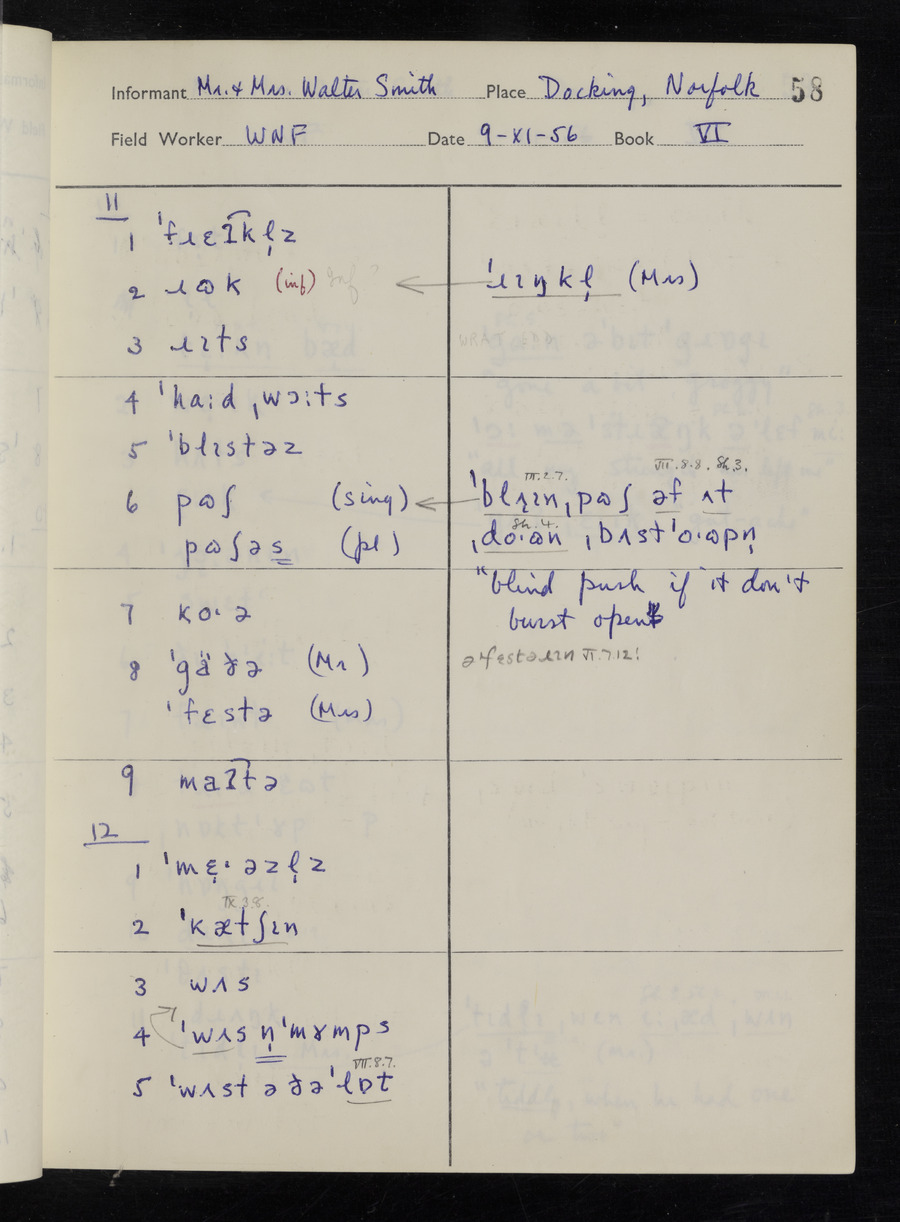 Informant Mr. & Mrs. Walter Smith Place Docking, Norfolk 58
Field Worker WNF Date 9-XI-56 Book VI
11
1 ˈfɹɛɪ͡kl̩z
2 ɹɷk (inf) inf? ← ˈɹɪŋkl̩ (Mrs)
3 ɹɪts
4 ˈhaːd ˌwɔːts
5 ˈblɪstəz
6 pɷʃ (sing) ←
pɷʃəs (pl)
III.2.7. VII.8.8. Sh.3.
ˈblɪn ˌpɷʃ əf ɪt
Sh.4.
ˌdoːən ˌbʌstˈoːɷpn̩
"blind push if it don't
burst open"
7 koˑə
8 ˈgäðə (Mr)
ˈfɛstə (Mrs)
əfestəɹɪn VI.7.12!
9 maɪ͡tə
12
1 ˈmɛ̣ˑəzl̩z
IX.3.8.
2 ˈkætʃɪn
3 wʌs
4 ˈwʌs n̩ ˈmɤmps
VII.8.7.
5 ˈwʌst əðəˈlɒt